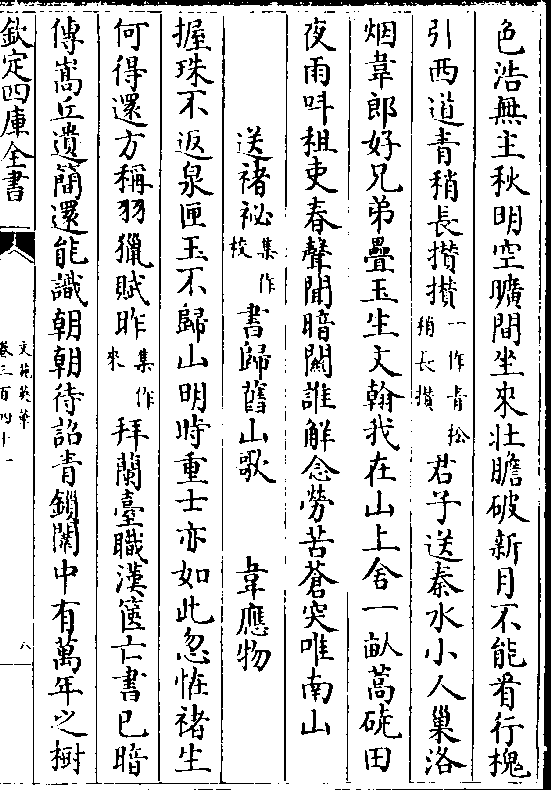 色浩無主秋明空曠間坐來壯膽破新月不能看行槐
引西道青稍長攅攅一作青松稍長攅君子送秦水小人巢洛
烟韋郎好兄弟疊玉生文翰我在山上舍一畝蒿磽田
夜雨呌租吏春聲聞暗闗誰解念勞苦蒼突唯南山
送褚祕集作校書歸舊山歌　韋應物
握珠不返泉匣玉不歸山明時重士亦如此忽恠褚生
何得還方稱羽獵賦昨集作來拜蘭臺職漢篋亡書已暗
傳嵩丘遺簡還能識朝朝待詔青鎖闈中有萬年之樹
欽定四庫全書
文苑英華
卷三百四十一
八